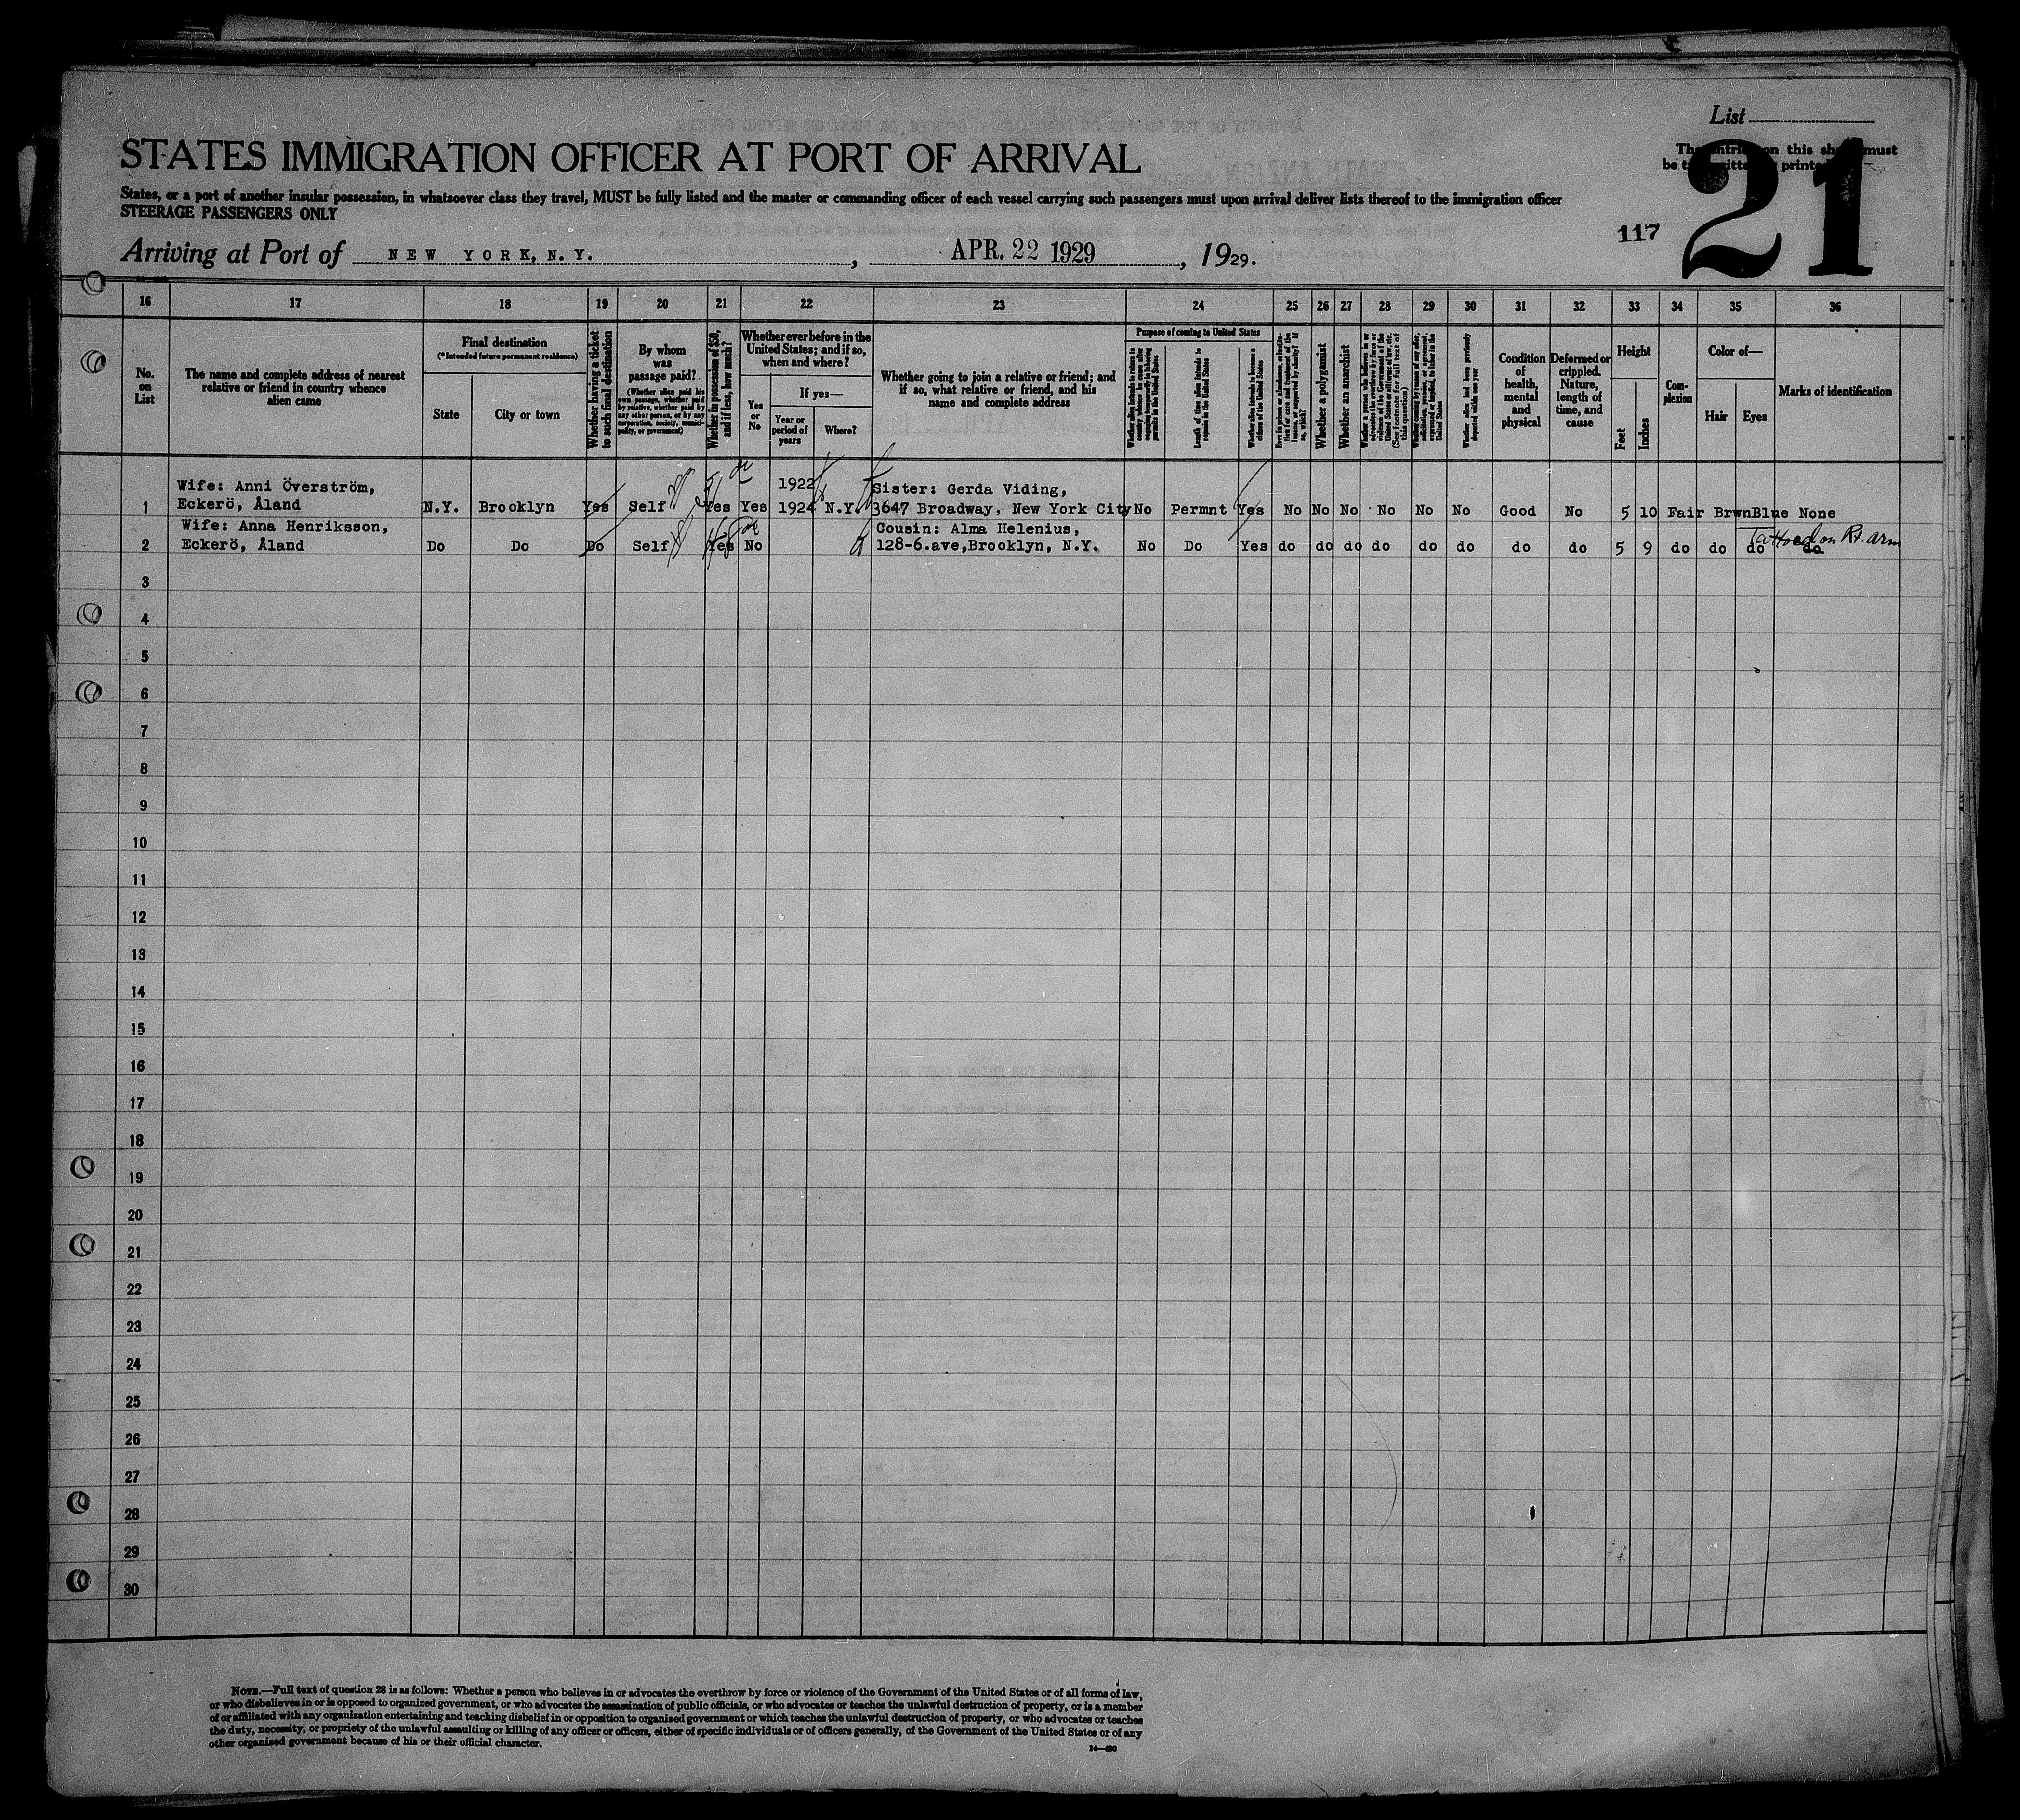 List
The entries on this sheet must
be typewritten or printed.
21
117
STATES IMMIGRATION OFFICER AT PORT OF ARRIVAL
States, or a port of another insular possession, in whatsoever class they travel, MUST be fully listed and the master or commanding officer of each vessel carrying such passengers must upon arrival deliver lists thereof to the immigration officer
STEERAGE PASSENGERS ONLY
Arriving at Port of NEW YORK, N.Y. , APR. 22 1929 , 1929.
16 17 18 19 20 21 22 23 24 25 26 27 28 29 30 31 32 33 34 35 36
No. on List
The name and complete address of nearest
relative or friend in country whence
alien came
Final destination
(*Intended future permanent residence)
State
City or town
Whether having a ticket to such final destination
By whom
was
passage paid?
(Whether alien paid his
own passage, whether paid
by relative, whether paid by
any other person, or by any
corporation, society, munici-
pality, or government)
Whether in possession of $50, and if less, how much?
Whether ever before in the
United States; and if so,
when and where?
Yes or No
If yes—
Year or period of years
Where?
Whether going to join a relative or friend; and
if so, what relative or friend, and his
name and complete address
Purpose of coming to United States
Length of time alien intends to remain in the United States
Whether alien intends to become a citizen of the United States
Whether a polygamist
Whether an anarchist
(See footnote for full text of this question)
Whether alien had been previously deported within one year
Condition of health, mental and physical
Deformed or crippled. Nature, length of time, and cause
Height
Feet
Inches
Com-
plexion
Color of—
Hair
Eyes
Marks of identification
Wife: Anni Överström, 1922 Sister: Gerda Viding,
1 Eckerö, Åland N.Y. Brooklyn Yes Self Yes Yes 1924 N.Y. 3647 Broadway, New York City No Permnt Yes No No No No No No Good No 5 10 Fair Brwn Blue None
Wife: Anna Henriksson, Cousin: Alma Helenius,
2 Eckerö, Åland Do Do Do Self Yes No 128-6.ave,Brooklyn, N.Y. No Do Yes do do do do do do do do 5 9 do do do do
Tattooed on Rt. arm
3
4
5
6
7
8
9
10
11
12
13
14
15
16
17
18
19
20
21
22
23
24
25
26
27
28
29
30
NOTE.—Full text of question 28 is as follows: Whether a person who believes in or advocates the overthrow by force or violence of the Government of the United States or of all forms of law,
or who disbelieves in or is opposed to organized government, or who advocates the assassination of public officials, or who advocates or teaches the unlawful destruction of property, or is a member
of or affiliated with any organization entertaining and teaching disbelief in or opposition to organized government or which teaches the unlawful destruction of property, or who advocates or teaches
the duty, necessity, or propriety of the unlawful assaulting or killing of any officer or officers, either of specific individuals or of officers generally, of the Government of the United States or of any
other organized government because of his or their official character.